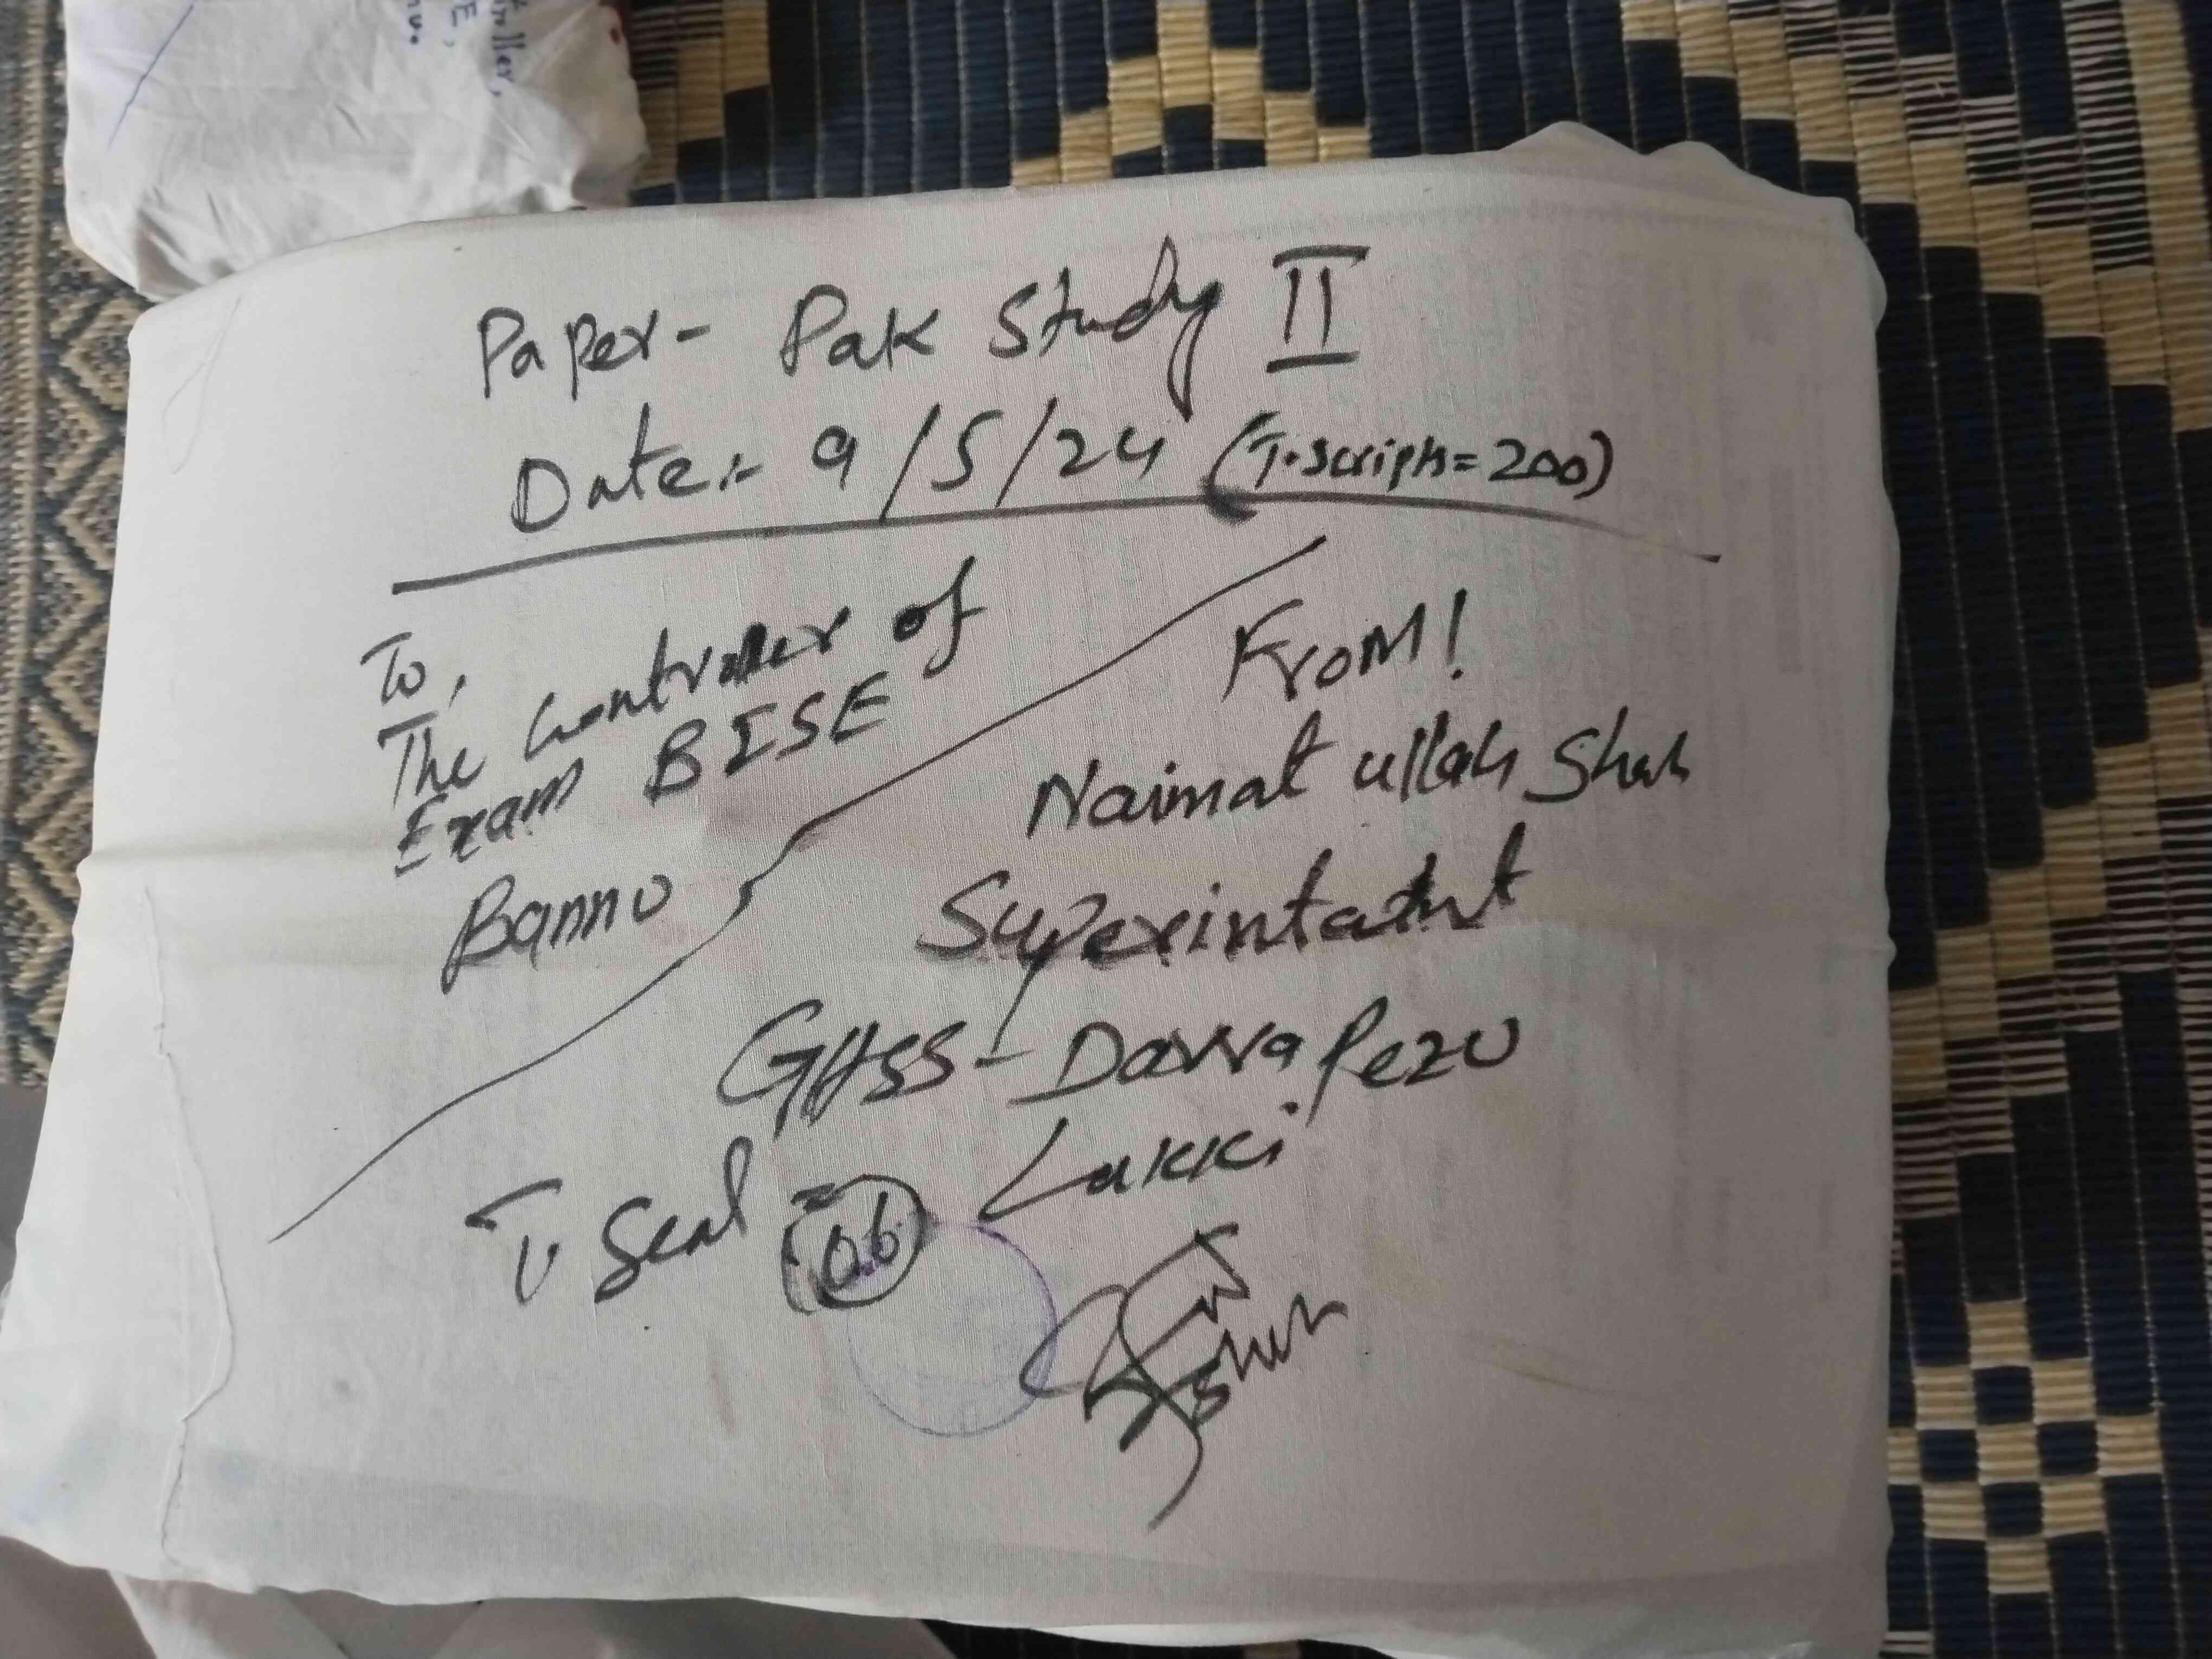 Paper- Pak Study II
Date:- 9/5/24 (T.Scripts=200)
To,
The Controller of
Exam BISE
Bannu
From!
Naimat ullah Shah
Superintatnt
GHSS- Darra Pezu
Lakki
T. Seal = 06